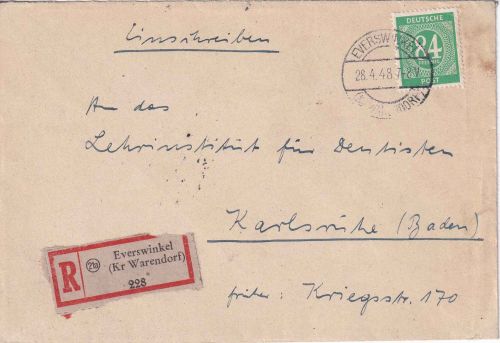 Einschreiben
DEUTSCHE
84
PFENNIG
POST
EVERSWINKEL
28.4.48
An das
Lehrinstitut für Dentisten
Karlsruhe (Baden)
früher: Kriegsstr. 170
R
21a
Everswinkel
(Kr Warendorf)
228